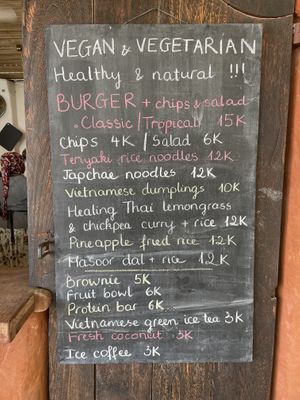 VEGAN & VEGETARIAN
Healthy & natural !!!
BURGER + chips & salad
• Classic/Tropical 15K
Chips 4K / Salad 6K
Teriyaki rice noodles 12K
Japchae noodles 12K
Vietnamese dumplings 10K
Healing Thai lemongrass
& chickpea curry + rice 12K
Pineapple fried rice 12K
Masoor dal + rice 12K
Brownie 5K
Fruit bowl 6K
Protein bar 6K
Vietnamese green ice tea 3K
Fresh coconut 3K
Ice coffee 3K